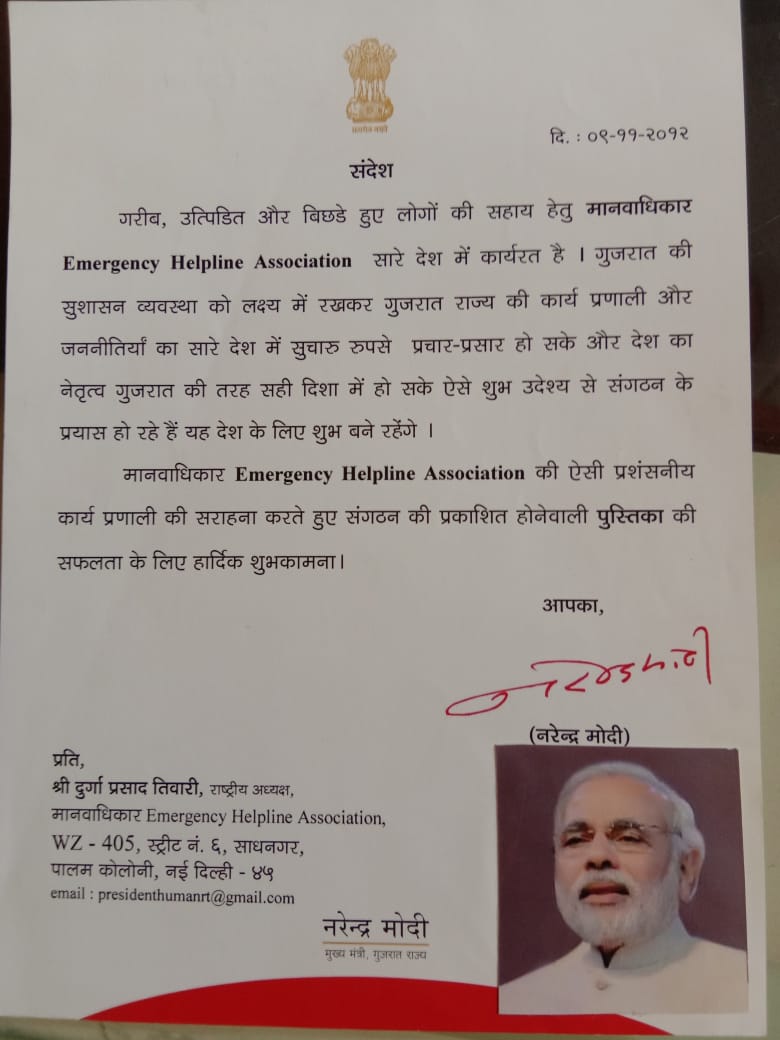 दि. : ०९-११-२०१२
संदेश
गरीब, उत्पिडित और बिछडे हुए लोगों की सहाय हेतु मानवाधिकार
Emergency Helpline Association सारे देश में कार्यरत है । गुजरात की
सुशासन व्यवस्था को लक्ष्य में रखकर गुजरात राज्य की कार्य प्रणाली और
जननीतियाँ का सारे देश में सुचारु रुपसे प्रचार-प्रसार हो सके और देश का
नेतृत्व गुजरात की तरह सही दिशा में हो सके ऐसे शुभ उदेश्य से संगठन के
प्रयास हो रहे हैं यह देश के लिए शुभ बने रहेंगे ।
मानवाधिकार Emergency Helpline Association की ऐसी प्रशंसनीय
कार्य प्रणाली की सराहना करते हुए संगठन की प्रकाशित होनेवाली पुस्तिका की
सफलता के लिए हार्दिक शुभकामना।
आपका,
(नरेन्द्र मोदी)
प्रति,
श्री दुर्गा प्रसाद तिवारी, राष्ट्रीय अध्यक्ष,
मानवाधिकार Emergency Helpline Association,
WZ - 405, स्ट्रीट नं. ६, साधनगर,
पालम कोलोनी, नई दिल्ही - ४५
email : presidenthumanrt@gmail.com
नरेन्द्र मोदी
मुख्य मंत्री, गुजरात राज्य